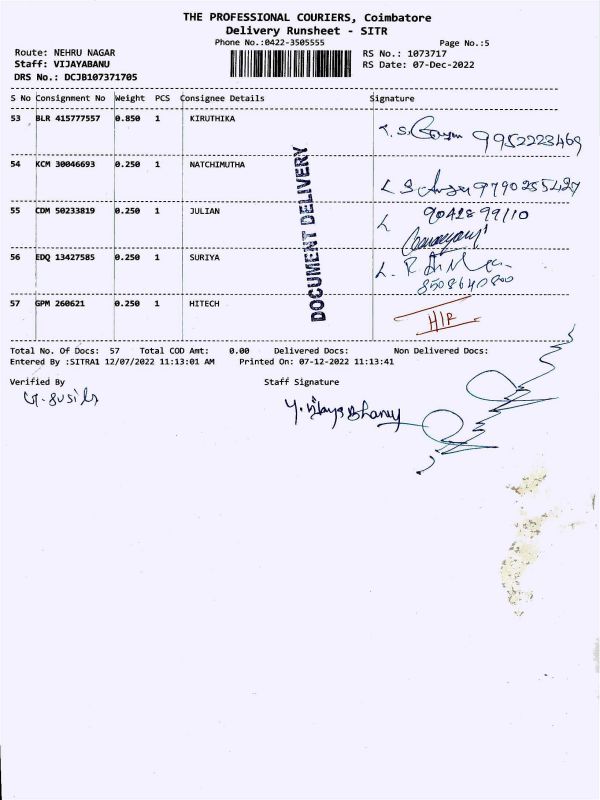 THE PROFESSIONAL COURIERS, Coimbatore
Delivery Runsheet - SITR
Phone No.:0422-3505555 Page No.:5
Route: NEHRU NAGAR RS No.: 1073717
Staff: VIJAYABANU RS Date: 07-Dec-2022
DRS No.: DCJB107371705
S No Consignment No Weight PCS Consignee Details Signature
53 BLR 415777557 0.850 1 KIRUTHIKA 9952223469
54 KCM 30046693 0.250 1 NATCHIMUTHA 9790255427
55 CDM 50233819 0.250 1 JULIAN 9042899110
56 EDQ 13427585 0.250 1 SURIYA 8508640800
57 GPM 260621 0.250 1 HITECH
DOCUMENT DELIVERY
Total No. Of Docs: 57 Total COD Amt: 0.00 Delivered Docs: Non Delivered Docs:
Entered By :SITRA1 12/07/2022 11:13:01 AM Printed On: 07-12-2022 11:13:41
Verified By Staff Signature